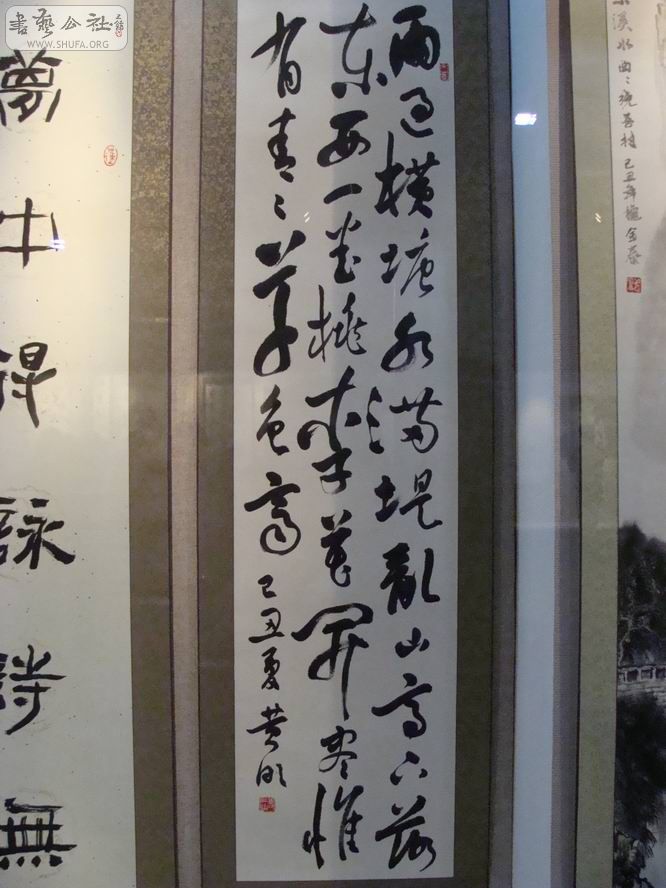 書藝公社
WWW.SHUFA.ORG
溪水曲〻繞吾村 己丑年 金泰
雨過橫塘水滿堤亂山高下路
東西一番桃李花開盡惟
有青〻草色齊 己丑夏黄
夢中得詠詩無